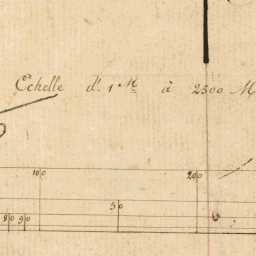 Echelle d. 1 M à 2500 M
100 200
50
80 90